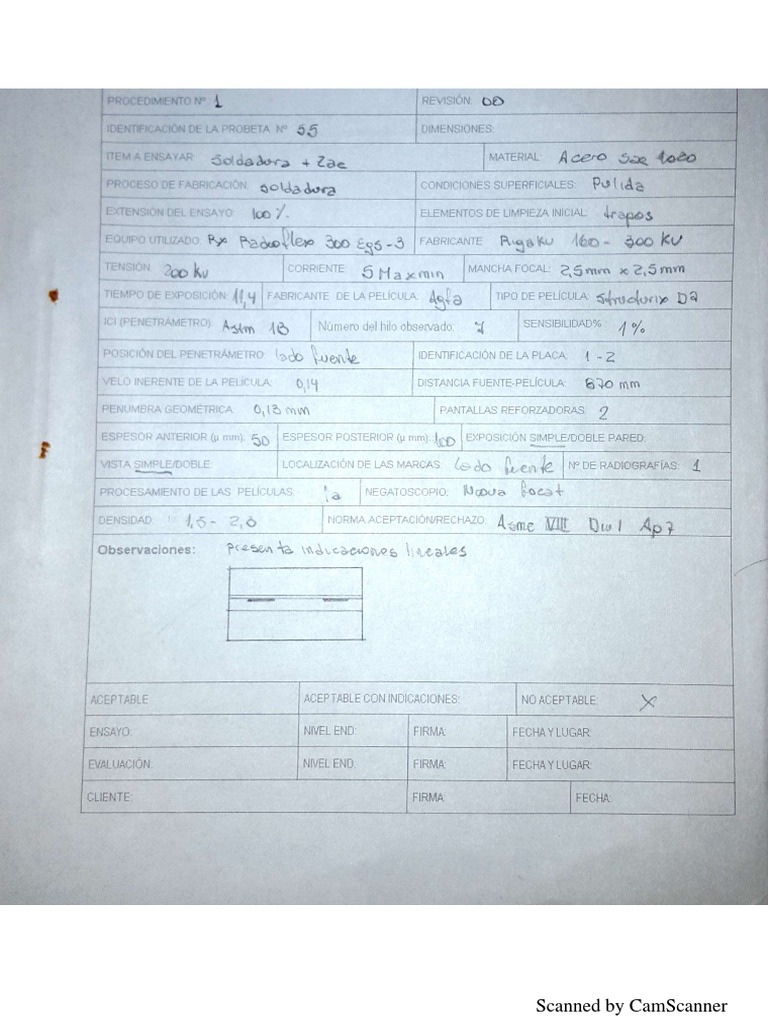 PROCEDIMIENTO Nº 1 REVISIÓN: 00
IDENTIFICACIÓN DE LA PROBETA Nº 55 DIMENSIONES:
ITEM A ENSAYAR Soldadura + Zac MATERIAL: Acero Sae 1020
PROCESO DE FABRICACIÓN: Soldadura CONDICIONES SUPERFICIALES: Pulida
EXTENSIÓN DEL ENSAYO: 100 % ELEMENTOS DE LIMPIEZA INICIAL: trapos
EQUIPO UTILIZADO: Rx Radioflex 300 Egs-3 FABRICANTE Rigaku 160 - 300 KV
TENSIÓN 200 kv CORRIENTE: 5 Maxmin MANCHA FOCAL: 2,5mm x 2,5mm
TIEMPO DE EXPOSICIÓN: 11,4 FABRICANTE DE LA PELÍCULA: Agfa TIPO DE PELÍCULA: Structurix D7
ICI (PENETRÁMETRO): Astm 1B Número del hilo observado: 7 SENSIBILIDAD% 1 %
POSICIÓN DEL PENETRÁMETRO: lado fuente IDENTIFICACIÓN DE LA PLACA: 1 - 2
VELO INERENTE DE LA PELÍCULA: 0,14 DISTANCIA FUENTE-PELÍCULA: 670 mm
PENUMBRA GEOMÉTRICA: 0,13 mm PANTALLAS REFORZADORAS: 2
ESPESOR ANTERIOR (µ mm): 50 ESPESOR POSTERIOR (µ mm): 100 EXPOSICIÓN SIMPLE/DOBLE PARED:
VISTA SIMPLE/DOBLE: LOCALIZACIÓN DE LAS MARCAS: Lado fuente Nº DE RADIOGRAFÍAS: 1
PROCESAMIENTO DE LAS PELÍCULAS: NEGATOSCOPIO:
DENSIDAD: 1,5 - 2,8 NORMA ACEPTACIÓN/RECHAZO: Asme VIII Div 1 Ap 7
Observaciones: Presenta indicaciones lineales
ACEPTABLE ACEPTABLE CON INDICACIONES: NO ACEPTABLE: X
ENSAYO: NIVEL END: FIRMA: FECHA Y LUGAR:
EVALUACIÓN: NIVEL END: FIRMA: FECHA Y LUGAR:
CLIENTE: FIRMA: FECHA:
Scanned by CamScanner